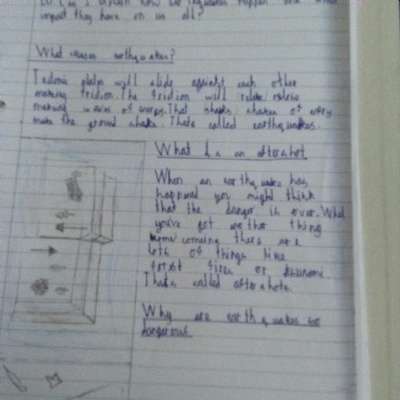 explain how earthquakes happen and what
impact they have on us all?
What causes earthquakes?
Tectonic plates will slide against each other
making friction. The friction will
making waves of energy. That
make the ground shake. Thats called earthquakes.
What is an aftershot
When an earthquake has
happened you might think
that the danger is over. What
you've got another thing
coming there are
lots of things like
forest fires or
Thats called aftershots.
Why are earthquakes so
dangerous